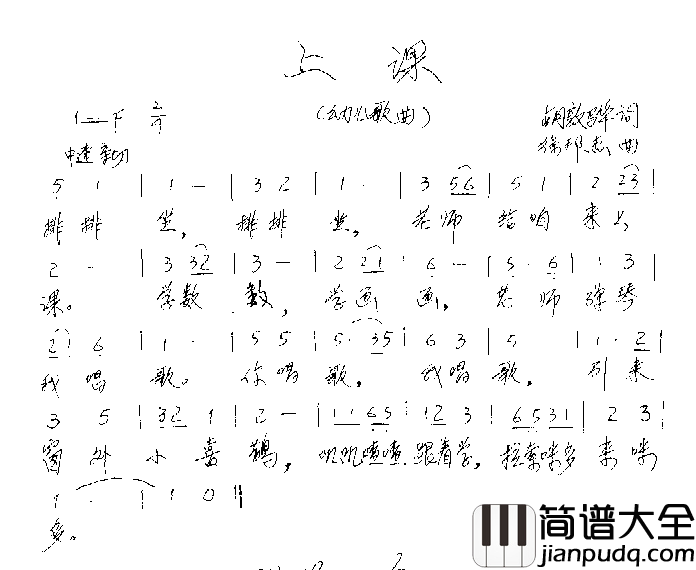 上 课
1=F 2/4 (幼儿歌曲) 胡敦骅词
中速 亲切 徐邦杰曲
5 1 | 1 - | 3 2 | 1 · | 3 56 | 5 1 | 2 23 |
排排 坐, 排排 坐, 老师 给咱 来上
2 · | 3 32 | 3 - | 2 21 | 6 - | 5 · 6 | 1 3 |
课。 学数 数, 学画 画, 老 师 弹琴
2 6 | 1 · | 5 5 | 5 · 35 | 6 3 | 5 | 1 · 2 |
我唱 歌。 你唱 歌, 我唱 歌, 引来
3 5 | 32 1 | 2 - | 11 65 | 12 3 | 6531 | 2 3 |
窗外 小喜 鹊, 叽叽喳喳 跟着学, 拉索咪多 来咪
1 · | 1 0 ‖
多。
简谱大全
jianpudq.com